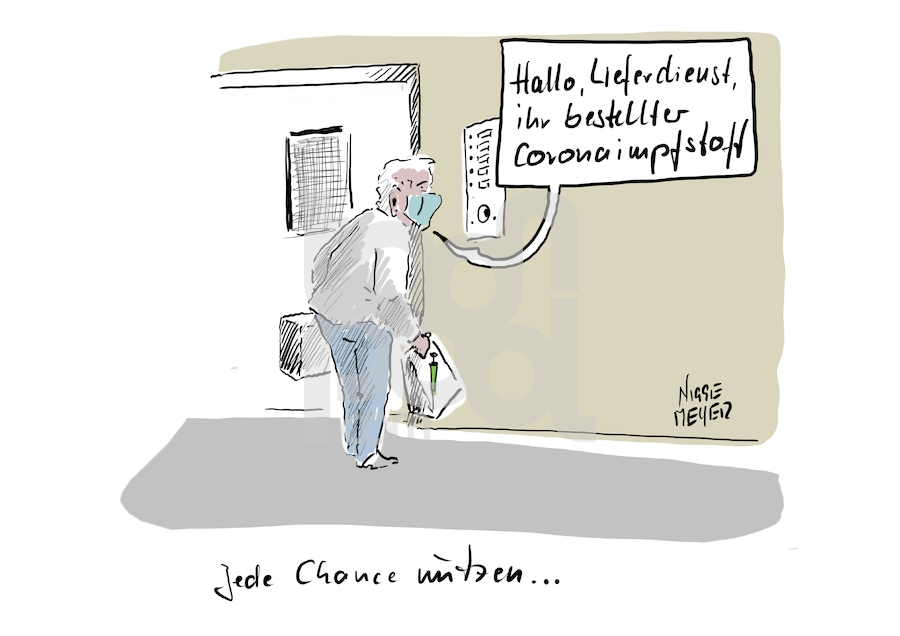 Hallo, Lieferdienst,
ihr bestellter
Coronaimpfstoff
NIGGIE
MEYER
jede Chance nützen...